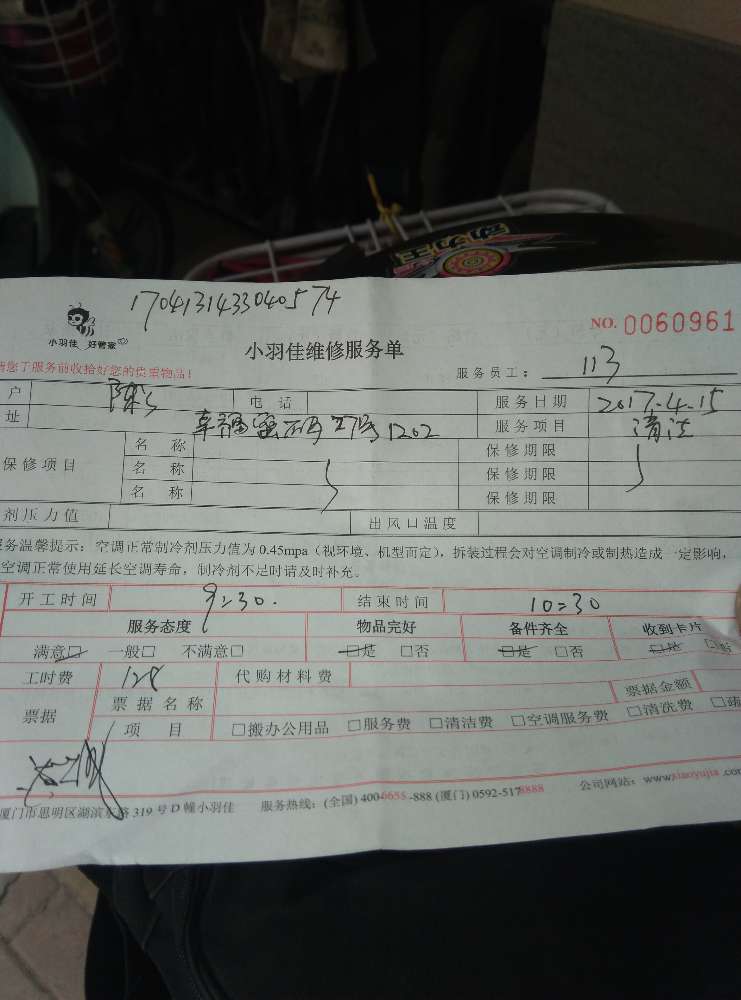 动力王
1704131433040574
小羽佳 好管家
NO. 0060961
小羽佳维修服务单
请您于服务前收拾好您的贵重物品！
服务员工： 113
户 陈 电话 服务日期 2017.4.15
址 27号1202 服务项目 清洁
保修项目 名称 保修期限
名称 保修期限
名称 保修期限
剂压力值 出风口温度
务温馨提示：空调正常制冷剂压力值为 0.45mpa（视环境、机型而定），拆装过程会对空调制冷或制热造成一定影响，
空调正常使用延长空调寿命，制冷剂不足时请及时补充。
开工时间 9:30. 结束时间 10:30
服务态度 物品完好 备件齐全 收到卡片
满意□ 一般□ 不满意□ □是 □否 □是 □否 □是 □否
工时费 128 代购材料费
票据 票据名称 票据金额
项目 □搬办公用品 □服务费 □清洁费 □空调服务费 □清洗费 □疏
厦门市思明区湖滨东路 319 号 D 幢小羽佳 服务热线：(全国) 400-6655-888 (厦门) 0592-5178888 公司网站：www.xiaoyujia.com